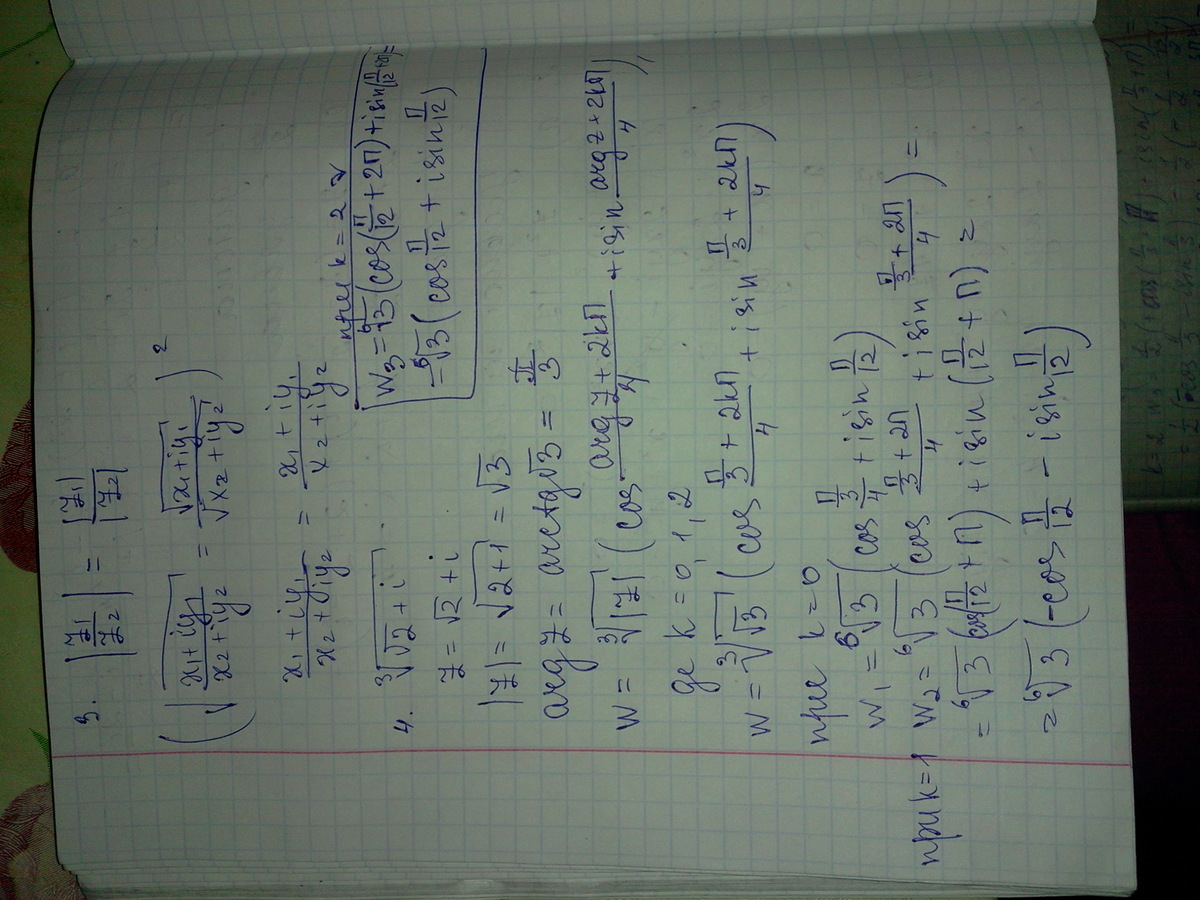 3. |z₁/z₂| = |z₁|/|z₂|
(√((x₁+iy₁)/(x₂+iy₂)) = √(x₁+iy₁)/√(x₂+iy₂))²
(x₁+iy₁)/(x₂+iy₂) = (x₁+iy₁)/(x₂+iy₂)
4. ∛(√2+i)
z = √2+i
|z| = √(2+1) = √3
arg z = arctg√3 = π/3
w = ∛|z| (cos (arg z+2kπ)/4 + i sin (arg z+2kπ)/4),
де k = 0, 1, 2
w = ∛√3 (cos (π/3+2kπ)/4 + i sin (π/3+2kπ)/4)
при k=0
w₁ = ⁶√3 (cos (π/3)/4 + i sin π/12)
при k=1 w₂ = ⁶√3 (cos (π/3+2π)/4 + i sin (π/3+2π)/4) =
= ⁶√3 (cos(π/12+π) + i sin(π/12+π) =
= ⁶√3 (-cos π/12 - i sin π/12)
при k=2
w₃ = ⁶√3 (cos(π/12+2π) + i sin(π/12+2π) =
= ⁶√3 (cos π/12 + i sin π/12)